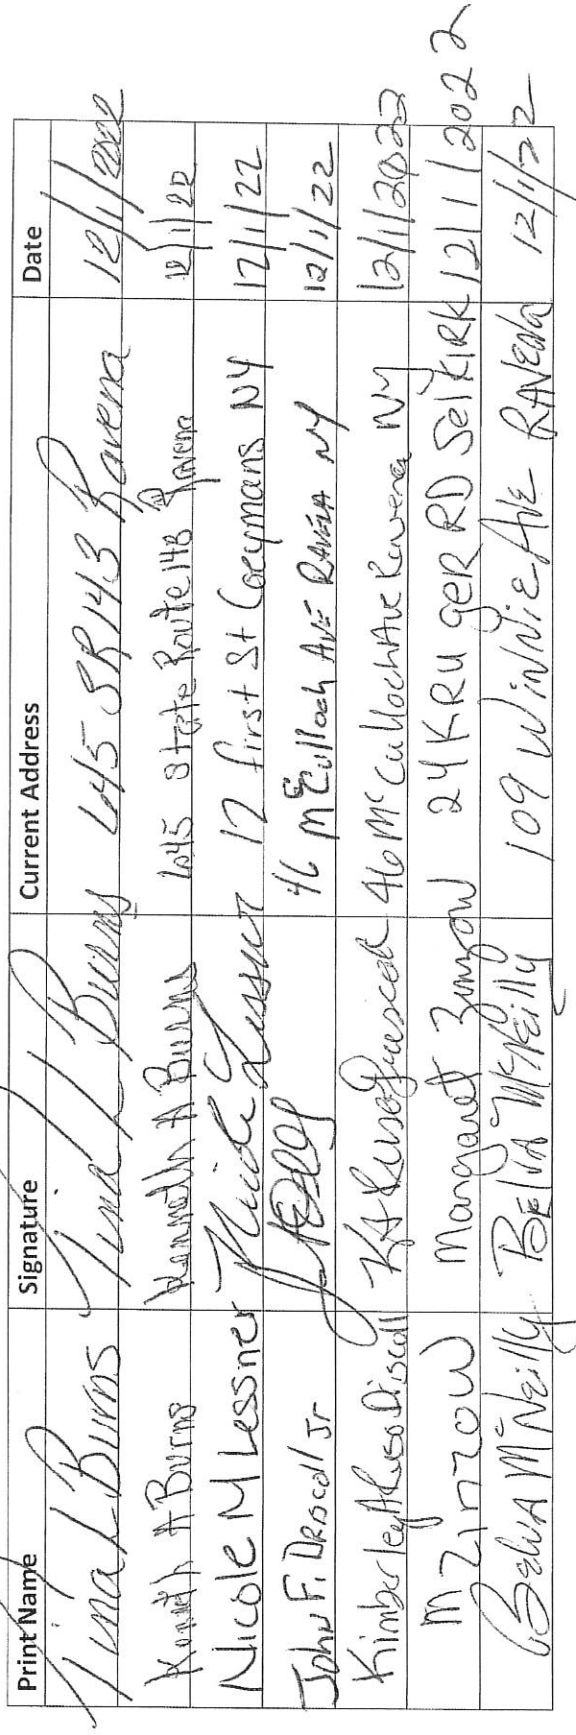 Print Name Signature Current Address Date
Tina L Burns Tina L Burns 645 SR 143 Ravena 12/1/2022
Kenneth A Burns Kenneth A Burns 645 State Route 143 Ravena 12/1/22
Nicole M Lessner Nicole Lessner 12 first St Coeymans NY 12/1/22
John F. Driscoll Jr 46 McCulloch AVE RAVENA NY 12/1/22
Kimberley A Russo Driscoll KA Russo Driscoll 46 McCulloch Ave Ravena NY 12/1/2022
M Zinzow Margaret Zinzow 24 KRUgeR RD SelKIRK 12/1/2022
Belva McNeilly BelvA McNeilly 109 WiNNiE AvE RAVENA 12/1/22